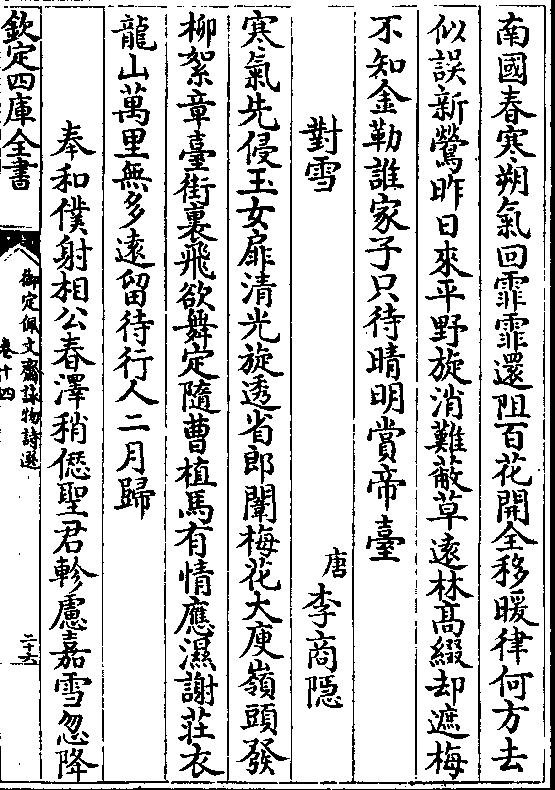 南國春寒朔氣回霏霏還阻百花開全移暖律何方去
似誤新鶯昨日來平野旋消難蔽草遠林高綴却遮梅
不知金勒誰家子只待晴明賞帝臺
對雪
唐 李商隠
寒氣先侵玉女扉清光旋透省郎闈梅花大庾嶺頭發
柳絮章臺街裏飛欲舞定隨曹植馬有情應濕謝荘衣
龍山萬里無多遠留待行人二月歸
奉和僕射相公春澤稍愆聖君軫慮嘉雪忽降
欽定四庫全書
御定佩文齋詠物詩選
卷十四
二十六